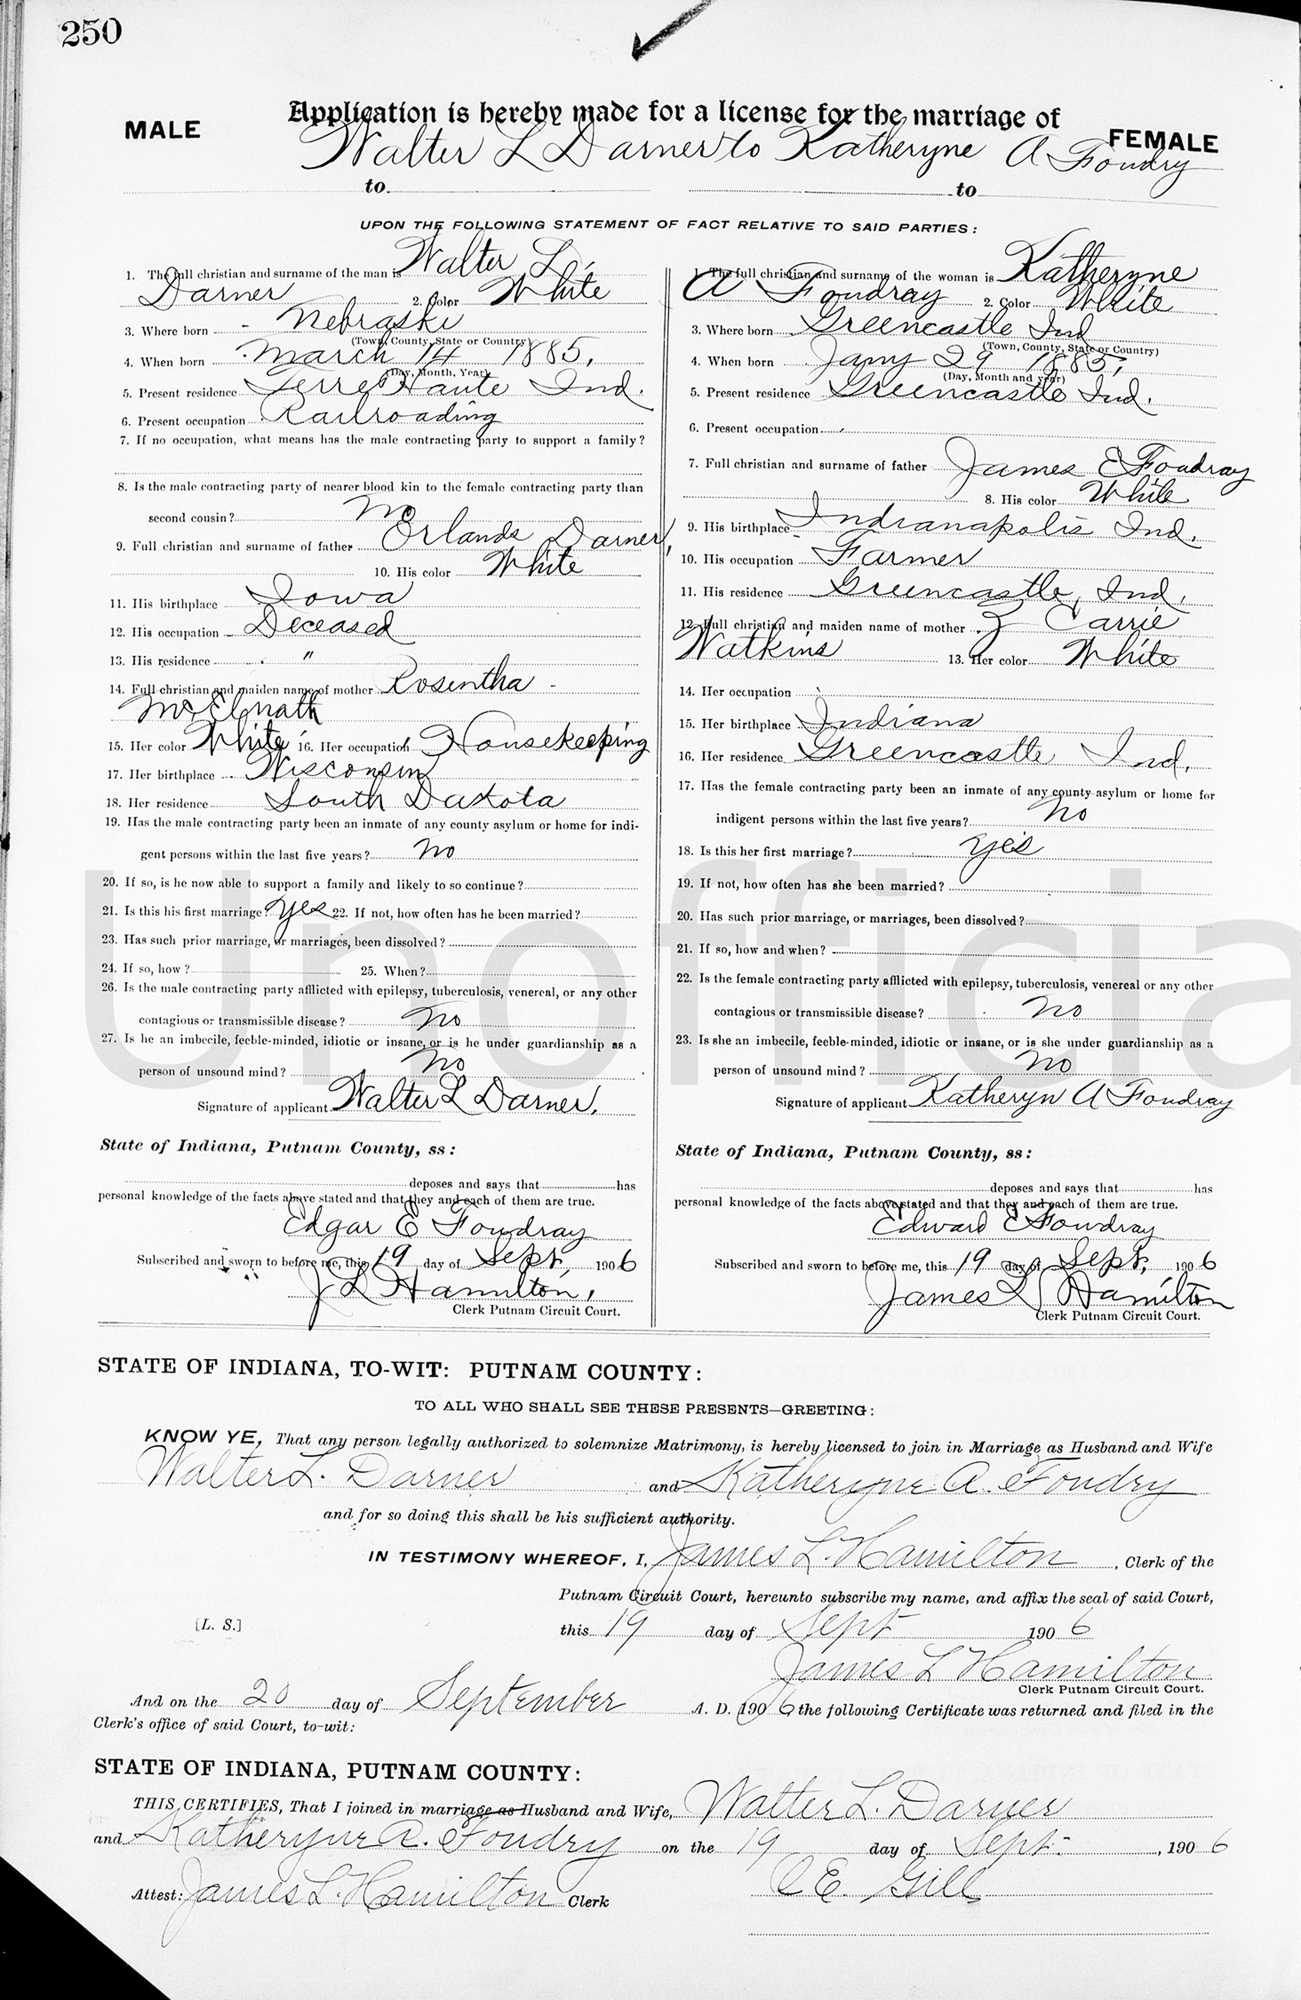 250
MALE
Application is hereby made for a license for the marriage of
FEMALE
Walter L Darner to Katheryne A Foudry
to to
UPON THE FOLLOWING STATEMENT OF FACT RELATIVE TO SAID PARTIES:
1. The full christian and surname of the man is Walter L.
Darner 2. Color White
3. Where born Nebraski
(Town, County, State or Country)
4. When born March 14 1885.
(Day, Month, Year)
5. Present residence Terre Haute Ind.
6. Present occupation Railroading
7. If no occupation, what means has the male contracting party to support a family?
8. Is the male contracting party of nearer blood kin to the female contracting party than
second cousin? No
9. Full christian and surname of father Orlando Darner,
10. His color White
11. His birthplace Iowa
12. His occupation Deceased
13. His residence "
14. Full christian and maiden name of mother Rosentha
McElnath
15. Her color White 16. Her occupation Housekeeping
17. Her birthplace Wisconsin
18. Her residence South Dakota
19. Has the male contracting party been an inmate of any county asylum or home for indi-
gent persons within the last five years? No
20. If so, is he now able to support a family and likely to so continue?
21. Is this his first marriage? Yes 22. If not, how often has he been married?
23. Has such prior marriage, or marriages, been dissolved?
24. If so, how? 25. When?
26. Is the male contracting party afflicted with epilepsy, tuberculosis, venereal, or any other
contagious or transmissible disease? No
27. Is he an imbecile, feeble-minded, idiotic or insane, or is he under guardianship as a
person of unsound mind? No
Signature of applicant Walter L Darner.
State of Indiana, Putnam County, ss:
deposes and says that has
personal knowledge of the facts above stated and that they and each of them are true.
Edgar E Foudray
Subscribed and sworn to before me, this 19 day of Sept, 1906
J L Hamilton,
Clerk Putnam Circuit Court.
1. The full christian and surname of the woman is Katheryne
A Foudray 2. Color White
3. Where born Greencastle Ind
(Town, County, State or Country)
4. When born Jany 29 1885,
(Day, Month and year)
5. Present residence Greencastle Ind.
6. Present occupation
7. Full christian and surname of father James E Foudray
8. His color White
9. His birthplace Indianapolis Ind.
10. His occupation Farmer
11. His residence Greencastle, Ind.
12. Full christian and maiden name of mother Carrie
Watkins 13. Her color White
14. Her occupation
15. Her birthplace Indiana
16. Her residence Greencastle Ind.
17. Has the female contracting party been an inmate of any county asylum or home for
indigent persons within the last five years? No
18. Is this her first marriage? Yes
19. If not, how often has she been married?
20. Has such prior marriage, or marriages, been dissolved?
21. If so, how and when?
22. Is the female contracting party afflicted with epilepsy, tuberculosis, venereal or any other
contagious or transmissible disease? No
23. Is she an imbecile, feeble-minded, idiotic or insane, or is she under guardianship as a
person of unsound mind? No
Signature of applicant Katheryn A Foudray
State of Indiana, Putnam County, ss:
deposes and says that has
personal knowledge of the facts above stated and that they and each of them are true.
Edward E Foudray
Subscribed and sworn to before me, this 19 day of Sept, 1906
James L Hamilton
Clerk Putnam Circuit Court.
Unofficia
STATE OF INDIANA, TO-WIT: PUTNAM COUNTY:
TO ALL WHO SHALL SEE THESE PRESENTS—GREETING:
KNOW YE, That any person legally authorized to solemnize Matrimony, is hereby licensed to join in Marriage as Husband and Wife
Walter L. Darner and Katheryne A. Foudry
and for so doing this shall be his sufficient authority.
IN TESTIMONY WHEREOF, I, James L. Hamilton, Clerk of the
Putnam Circuit Court, hereunto subscribe my name, and affix the seal of said Court,
[L. S.] this 19 day of Sept 1906
James L Hamilton
Clerk Putnam Circuit Court.
And on the 20 day of September A. D. 1906 the following Certificate was returned and filed in the
Clerk's office of said Court, to-wit:
STATE OF INDIANA, PUTNAM COUNTY:
THIS CERTIFIES, That I joined in marriage as Husband and Wife, Walter L. Darner
and Katheryne A. Foudry on the 19 day of Sept. , 1906
O E. Gill
Attest: James L. Hamilton Clerk